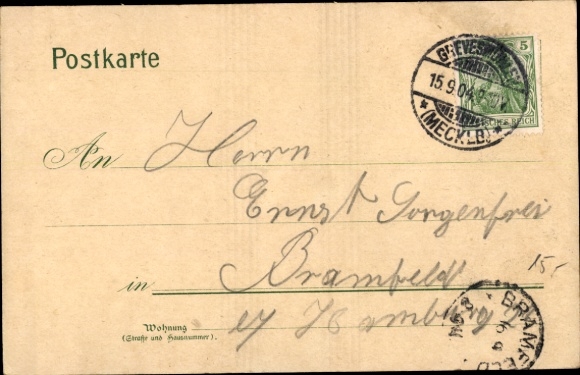 Postkarte
5
GREVESMÜHLEN
15.9.04
(MECKLB)
REICH
An Herrn
Ernst Sorgenfrei
15.-
in Bramfeld
Hamburg
BRAMFELD
Wohnung
(Straße und Hausnummer).